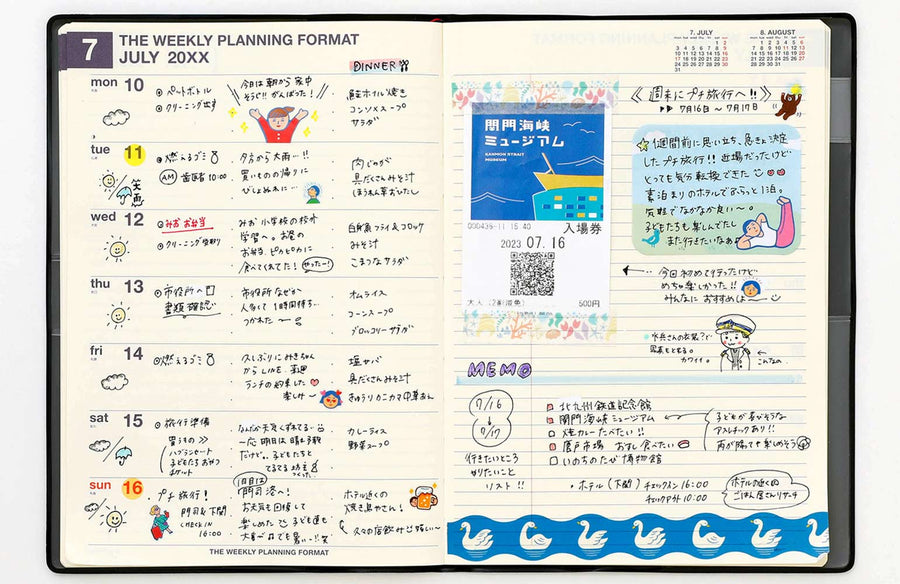 7
THE WEEKLY PLANNING FORMAT
JULY 20XX
DINNER
mon 10
ペットボトル
クリーニング出す
今日は朝から家中
そうじ!! がんばった!
鮭ホイル焼き
コンソメスープ
サラダ
tue 11
燃えるゴミ
AM 歯医者 10:00
夕方から大雨ー!!
買いもの帰りに
びしょぬれに…
肉じゃが
具だくさんみそ汁
ほうれん草おひたし
wed 12
みお お弁当
クリーニング受取り
みお 小学校の校外
学習へ。お昼の
お弁当、ピカピカに
食べてくれてた!
やったー!
白身魚フライ&コロッケ
みそ汁
こまつなサラダ
thu 13
市役所へ
書類確認
市役所なぜか
人多くて1時間待ち…
つかれた〜
オムライス
コーンスープ
ブロッコリーサラダ
fri 14
燃えるゴミ
久しぶりにみきちゃん
からLINE。来週
ランチの約束した
楽しみ〜
塩サバ
具だくさんみそ汁
きゅうりカニカマ中華あえ
sat 15
旅行準備
買うもの >>
ハブラシセット
子どもたちおやつ
なんか天気くずれてる
一応 明日は晴れ予報
だけど。子どもたちと
てるてる坊主
つくった。
カレーライス
野菜スープ
sun 16
プチ旅行!
門司&下関
CHECK IN
16:00
1日目は
門司港へ!
お天気も回復して
楽しめた 子ども達も
ホテル近くの
焼き鳥やさん!
久々の居酒屋 嬉しい〜
THE WEEKLY PLANNING FORMAT
7. JULY
8. AUGUST
関門海峡
ミュージアム
KANMON STRAIT
MUSEUM
000439-11 15:40
入場券
2023 07.16
大人(2割減免)
500円
《週末にプチ旅行へ!!》
▶▶ 7月16日 〜 7月17日
1週間前に思い立ち、急きょ決定
したプチ旅行!! 近場だったけど
とっても気分転換できた
素泊まりのホテルでふらっと1泊。
気軽でなかなか良い〜。
子どもたちも楽しんでたし
また行きたいなぁ
今回初めて行ったけど
めちゃ楽しかった!!
みんなにおすすめしよ〜
水兵さんの衣装?で
写真もとれる。
カワイイ。
こんなの
MEMO
7/16
7/17
行きたいところ
やりたいこと
リスト!!
北九州鉄道記念館
関門海峡ミュージアム
焼カレーたべたい!!
唐戸市場 おすし食べたい
いのちのたび博物館
子どもが喜びそうな
アスレチックあり!!
雨が降っても楽しめそう
・ホテル(下関) チェックイン 16:00
チェックアウト 10:00
ホテルの近くの
ごはん屋さんリサーチ